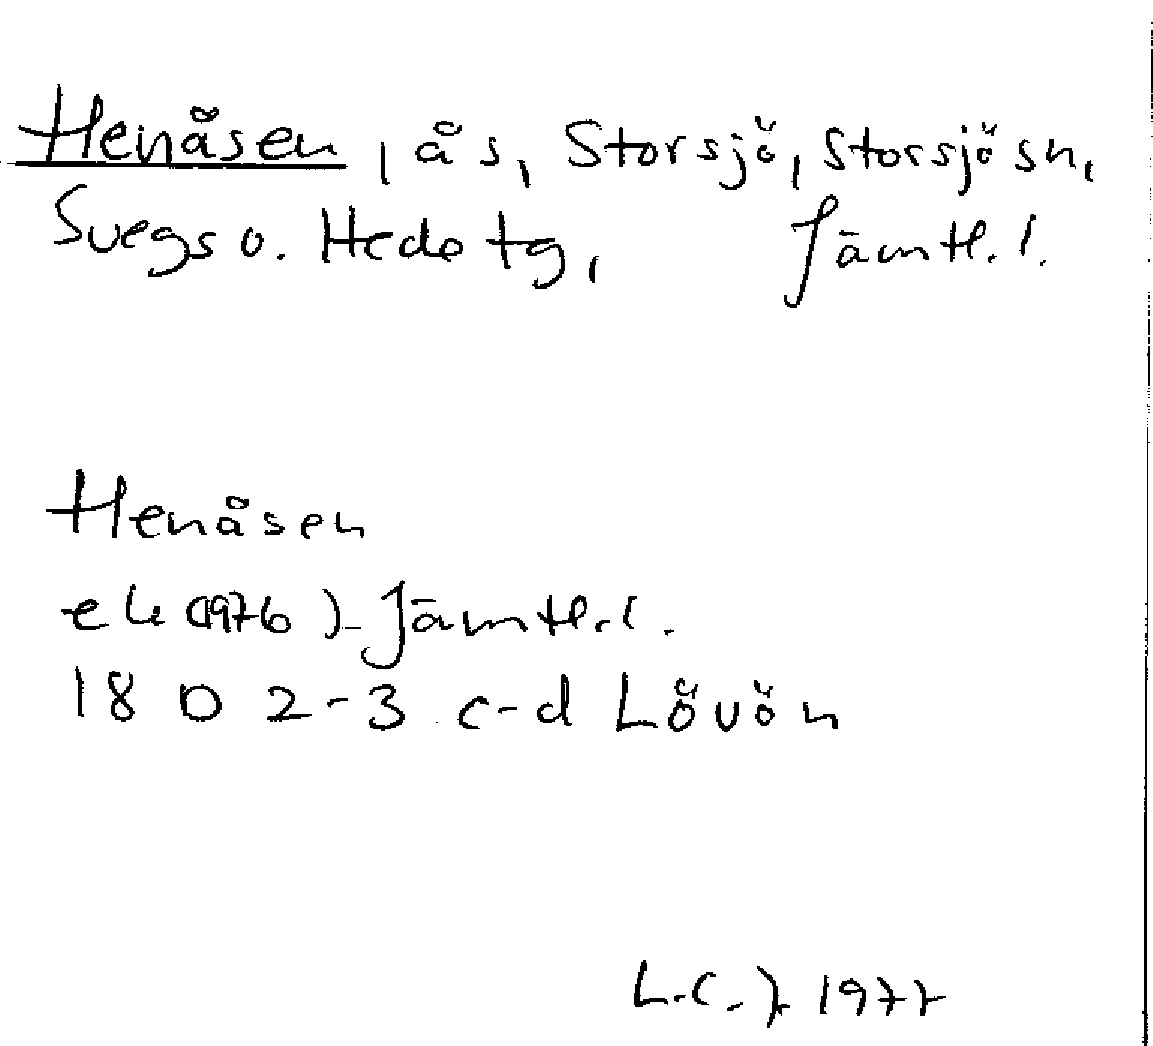 Henåsen, ås, Storsjö, Storsjö sn,
Svegs o. Hede tg, Jämtl. l.
Henåsen
ek (1976) Jämtl. l.
18 D 2-3 c-d Lövön
L.C.J. 1977